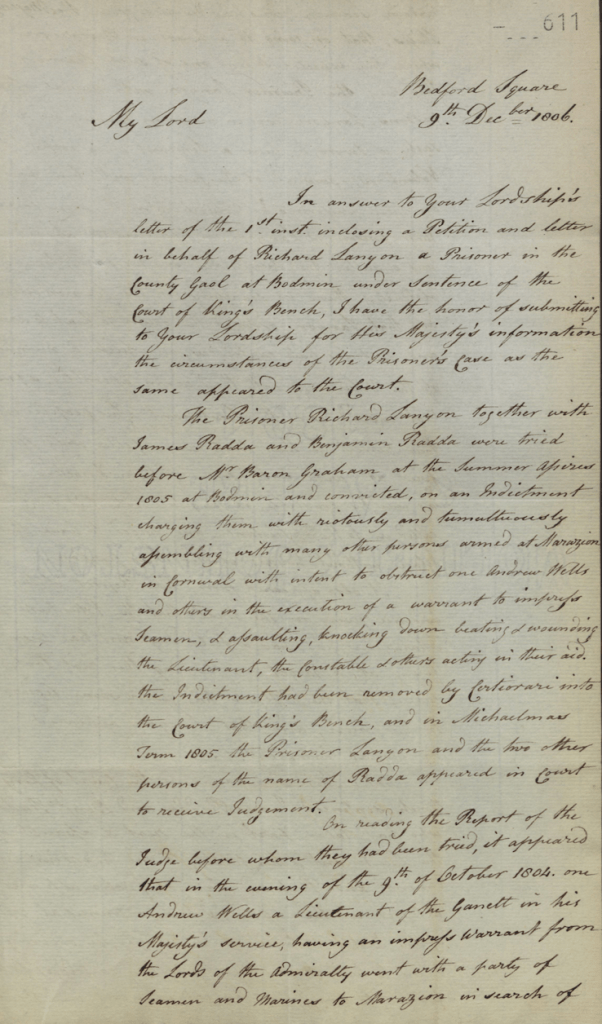 611
Bedford Square
9th. Decber 1806.
My Lord
In answer to Your Lordship's
letter of the 1st. inst. inclosing a Petition and letter
in behalf of Richard Lanyon a Prisoner in the
County Gaol at Bodmin under Sentence of the
Court of King's Bench, I have the honor of submitting
to Your Lordship for His Majesty's information
the circumstances of the Prisoner's Case as the
same appeared to the Court.
The Prisoner Richard Lanyon together with
James Radda and Benjamin Radda were tried
before Mr. Baron Graham at the Summer Assizes
1805 at Bodmin and convicted, on an Indictment
charging them with riotously and tumultuously
assembling with many other persons armed at Marazion
in Cornwal with intent to obstruct one Andrew Wells
and others in the execution of a warrant to impress
Seamen, & assaulting, knocking down beating & wounding
the Lieutenant, the Constable & others acting in their aid.
the Indictment had been removed by Certiorari into
the Court of King's Bench, and in Michaelmas
Term 1805 the Prisoner Lanyon and the two other
persons of the name of Radda appeared in Court
to receive Judgement.
On reading the Report of the
Judge before whom they had been tried, it appeared
that in the evening of the 9th. of October 1804. one
Andrew Wells a Lieutenant of the Ganett in his
Majesty's service, having an impress Warrant from
the Lords of the Admiralty went with a party of
Seamen and Marines to Marazion in search of